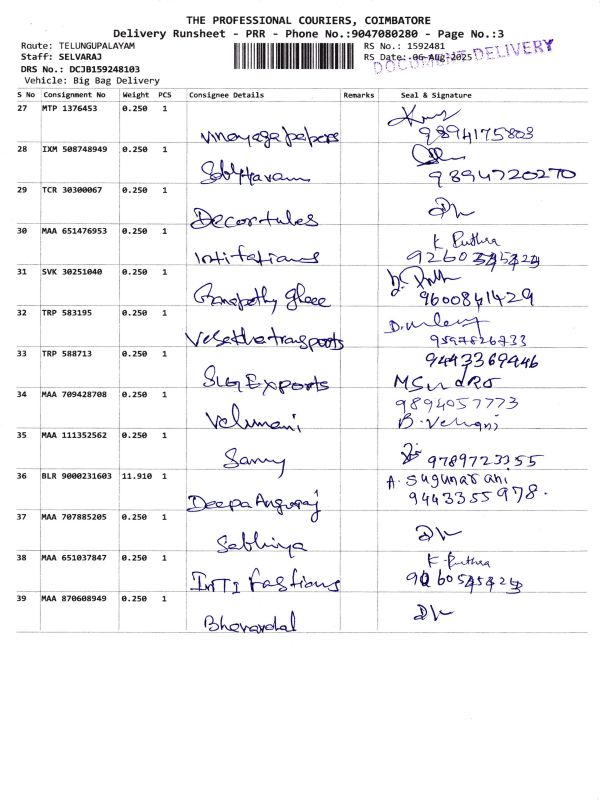 THE PROFESSIONAL COURIERS, COIMBATORE
Delivery Runsheet - PRR - Phone No.:9047080280 - Page No.:3
Route: TELUNGUPALAYAM
Staff: SELVARAJ
DRS No.: DCJB159248103
Vehicle: Big Bag Delivery
RS No.: 1592481
RS Date.:06-Aug-2025
DOCUMENT DELIVERY
S No Consignment No Weight PCS Consignee Details Remarks Seal & Signature
27 MTP 1376453 0.250 1 9894175803
28 IXM 508748949 0.250 1 9894720270
29 TCR 30300067 0.250 1 Decortubes
30 MAA 651476953 0.250 1 Intifations K Puthra
31 SVK 30251040 0.250 1 Ganapathy 9600841429
32 TRP 583195 0.250 1 9597826733
33 TRP 588713 0.250 1 SLG Exports 9443369446
34 MAA 709428708 0.250 1 Velumani 9894057773
35 MAA 111352562 0.250 1 Samy 9789723355
36 BLR 9000231603 11.910 1 Deepa Anguraj A. Sugunarani
9443355978.
37 MAA 707885205 0.250 1
38 MAA 651037847 0.250 1 INTI Fastions K. Puthra
39 MAA 870608949 0.250 1